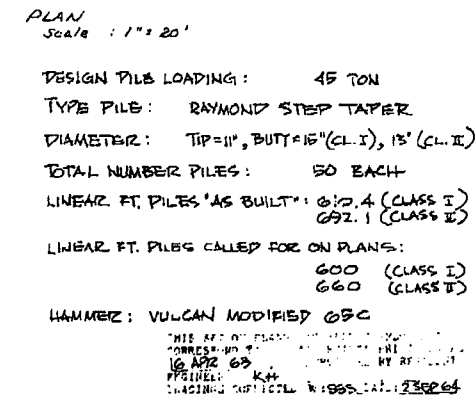 PLAN
Scale : 1" = 20'
DESIGN PILE LOADING : 45 TON
TYPE PILE : RAYMOND STEP TAPER
DIAMETER : TIP = 11", BUTT = 15" (CL. I), 13" (CL. II)
TOTAL NUMBER PILES : 50 EACH
LINEAR FT. PILES "AS BUILT" : 612.4 (CLASS I)
692.1 (CLASS II)
LINEAR FT. PILES CALLED FOR ON PLANS :
600 (CLASS I)
660 (CLASS II)
HAMMER : VULCAN MODIFIED 65C
THIS SET OF PLANS
CORRESPOND
16 APR 63 BY
ENGINEER KH
TRACINGS 23SEP64